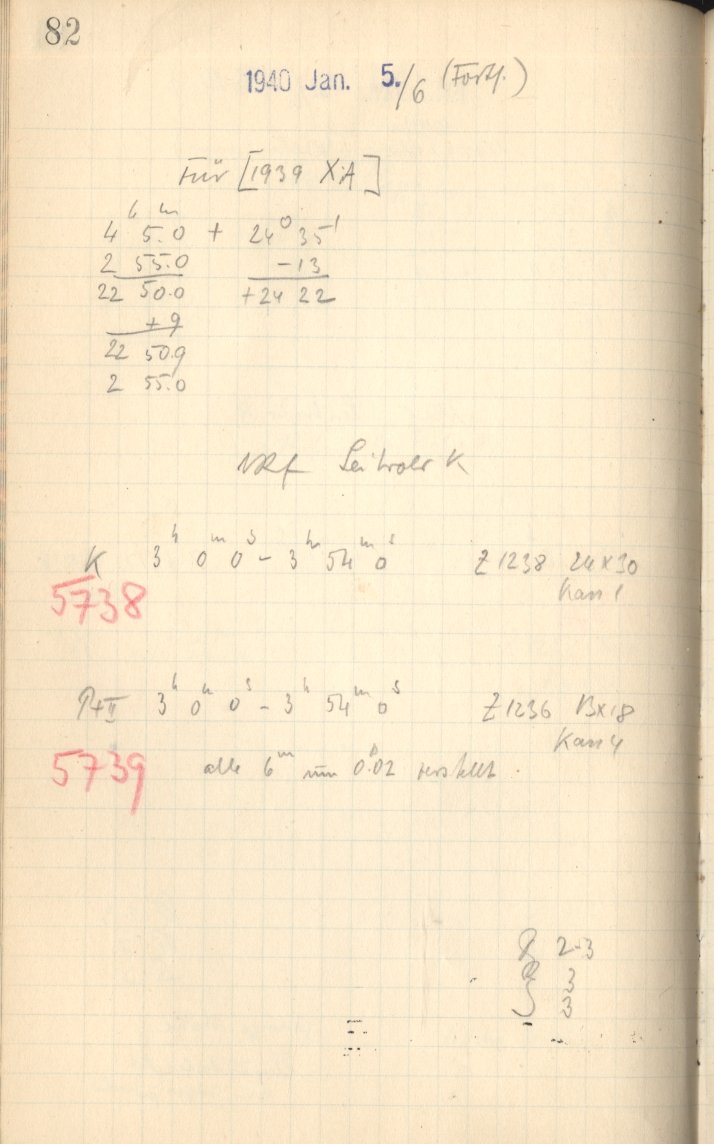 82
1940 Jan. 5./6 (Fortf.)
Für [1939 XA]
h m
4 5.0 + 24° 35'
2 55.0 -13
22 50.0 +24 22
+9
22 50.9
2 55.0
Leitrohr K
K 3h 0m 0s - 3h 54m 0s Z 1238 24x30
Kass 1
5738
3h 0m 0s - 3h 54m 0s Z 1236 13x18
Kass 4
5739 alle 6m um 0.02 verstellt.
2-3
3
3